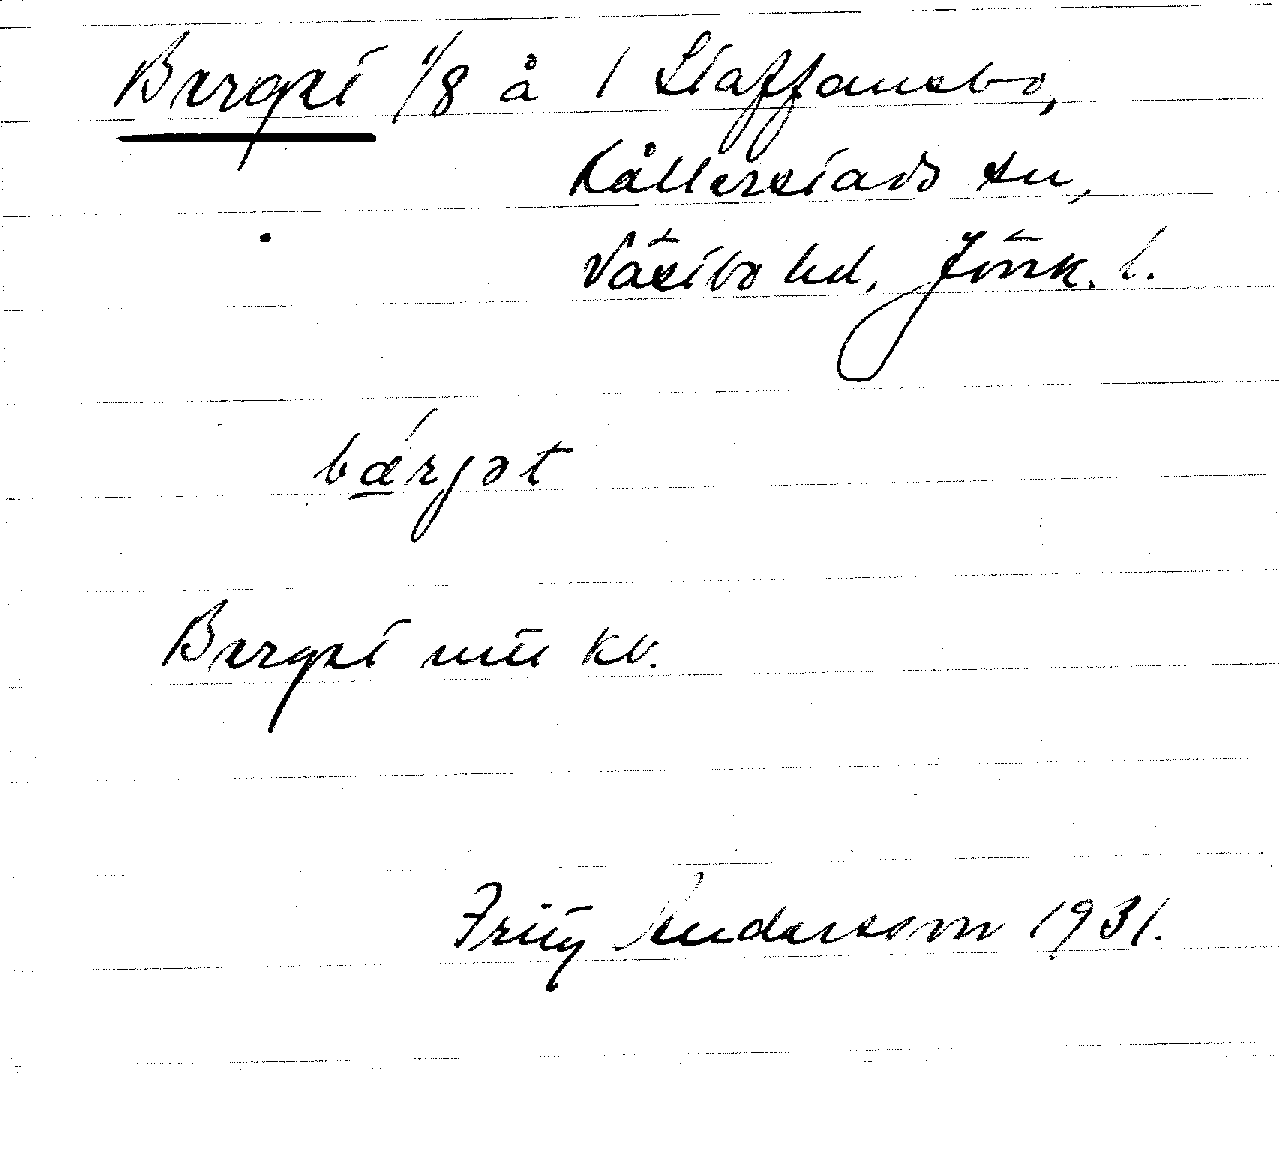 Berget 1/8 å 1 Staffansbo,
Kållerstads sn,
Västbo hd, Jönk. l.
bǽrjət
Berget utit kv.
Fritz Andersson 1931.